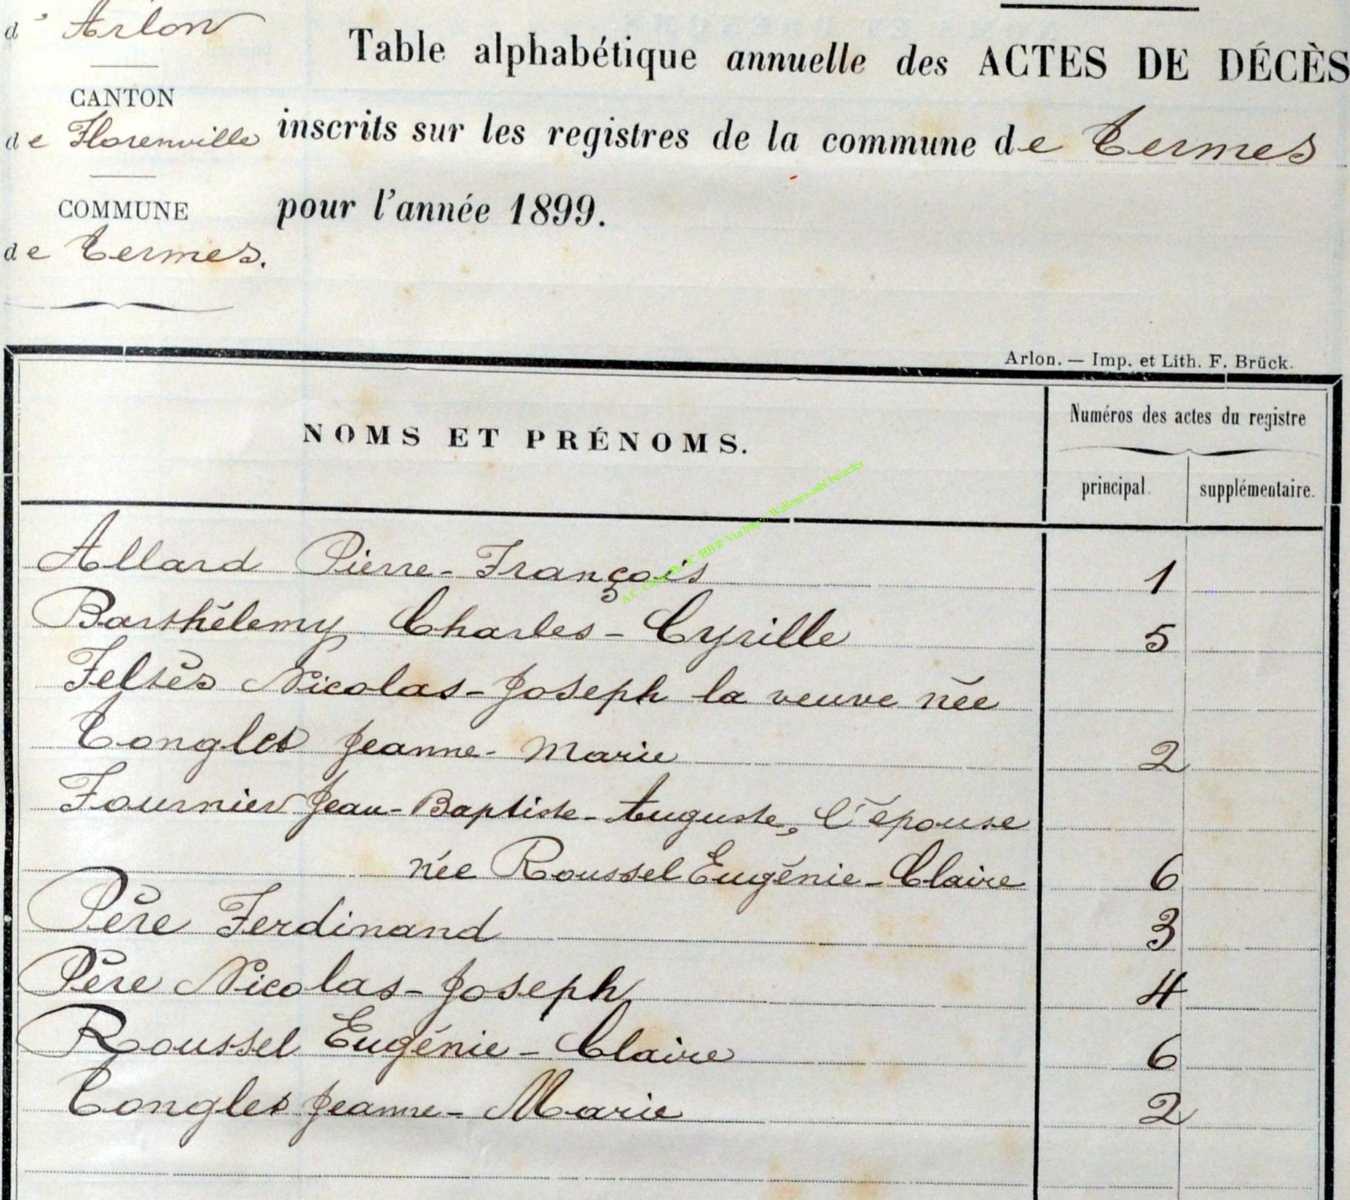 d'Arlon
CANTON
de Florenville
COMMUNE
de Termes.
Table alphabétique annuelle des ACTES DE DÉCÈS
inscrits sur les registres de la commune de Termes
pour l'année 1899.
Arlon. — Imp. et Lith. F. Brück.
NOMS ET PRÉNOMS.
Numéros des actes du registre
principal. supplémentaire.
Allard Pierre-François 1
Barthélemy Charles-Cyrille 5
Feltès Nicolas-Joseph la veuve née
Tonglet Jeanne-Marie 2
Fournier Jean-Baptiste-Auguste, l'épouse
née Roussel Eugénie-Claire 6
Père Ferdinand 3
Père Nicolas-Joseph 4
Roussel Eugénie-Claire 6
Tonglet Jeanne-Marie 2